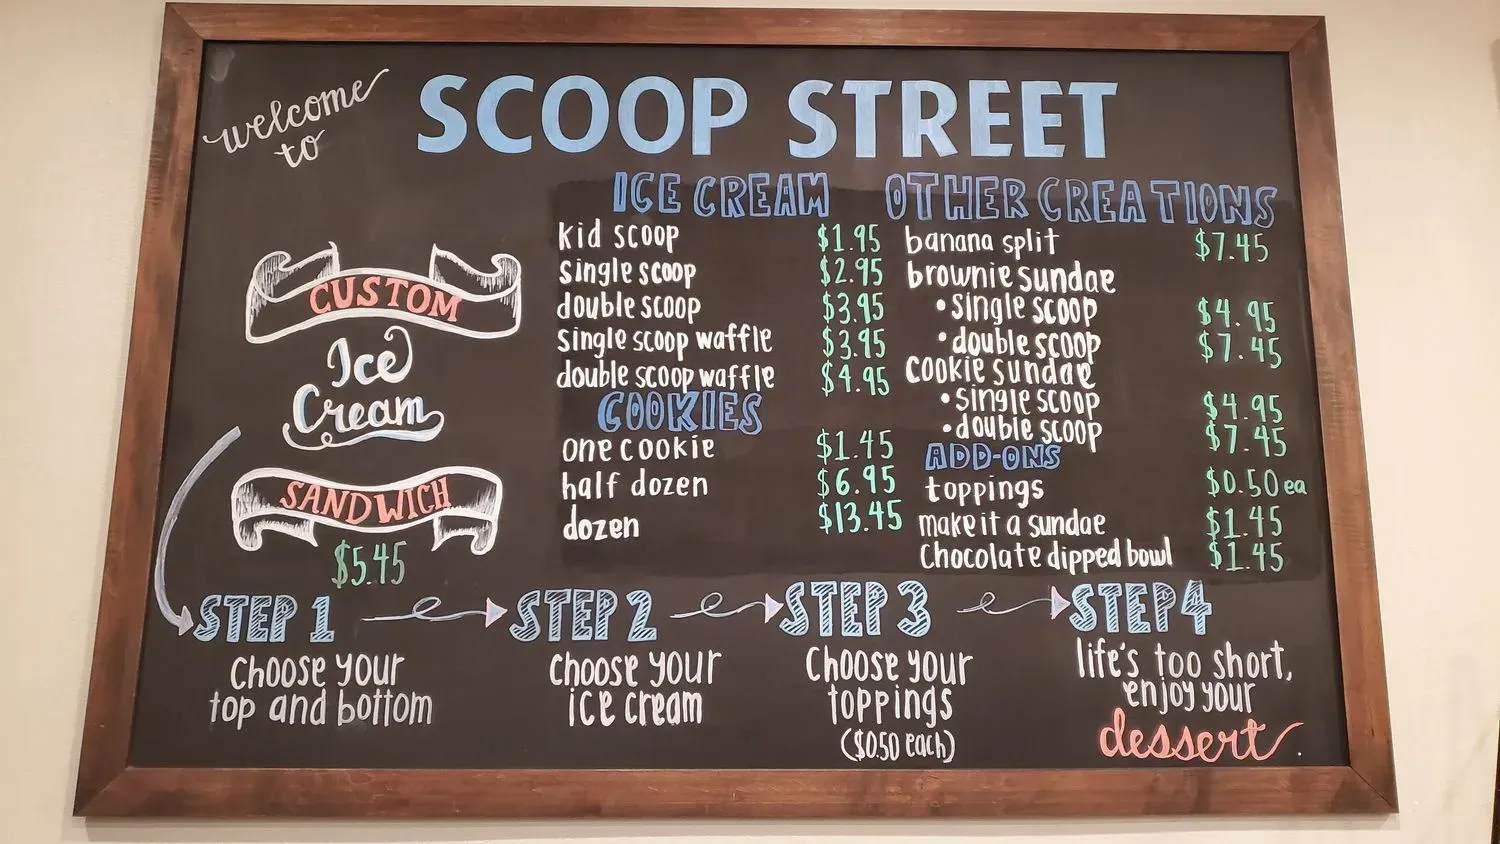 welcome
to
SCOOP STREET
CUSTOM
Ice
Cream
SANDWICH
$5.45
ICE CREAM
kid scoop $1.95
single scoop $2.95
double scoop $3.95
single scoop waffle $3.95
double scoop waffle $4.95
COOKIES
one cookie $1.45
half dozen $6.95
dozen $13.45
OTHER CREATIONS
banana split $7.45
brownie sundae
• single scoop $4.95
• double scoop $7.45
cookie sundae
• single scoop $4.95
• double scoop $7.45
ADD-ONS
toppings $0.50 ea
make it a sundae $1.45
Chocolate dipped bowl $1.45
STEP 1
choose your
top and bottom
STEP 2
choose your
ice cream
STEP 3
choose your
toppings
($0.50 each)
STEP 4
life's too short,
enjoy your
dessert.